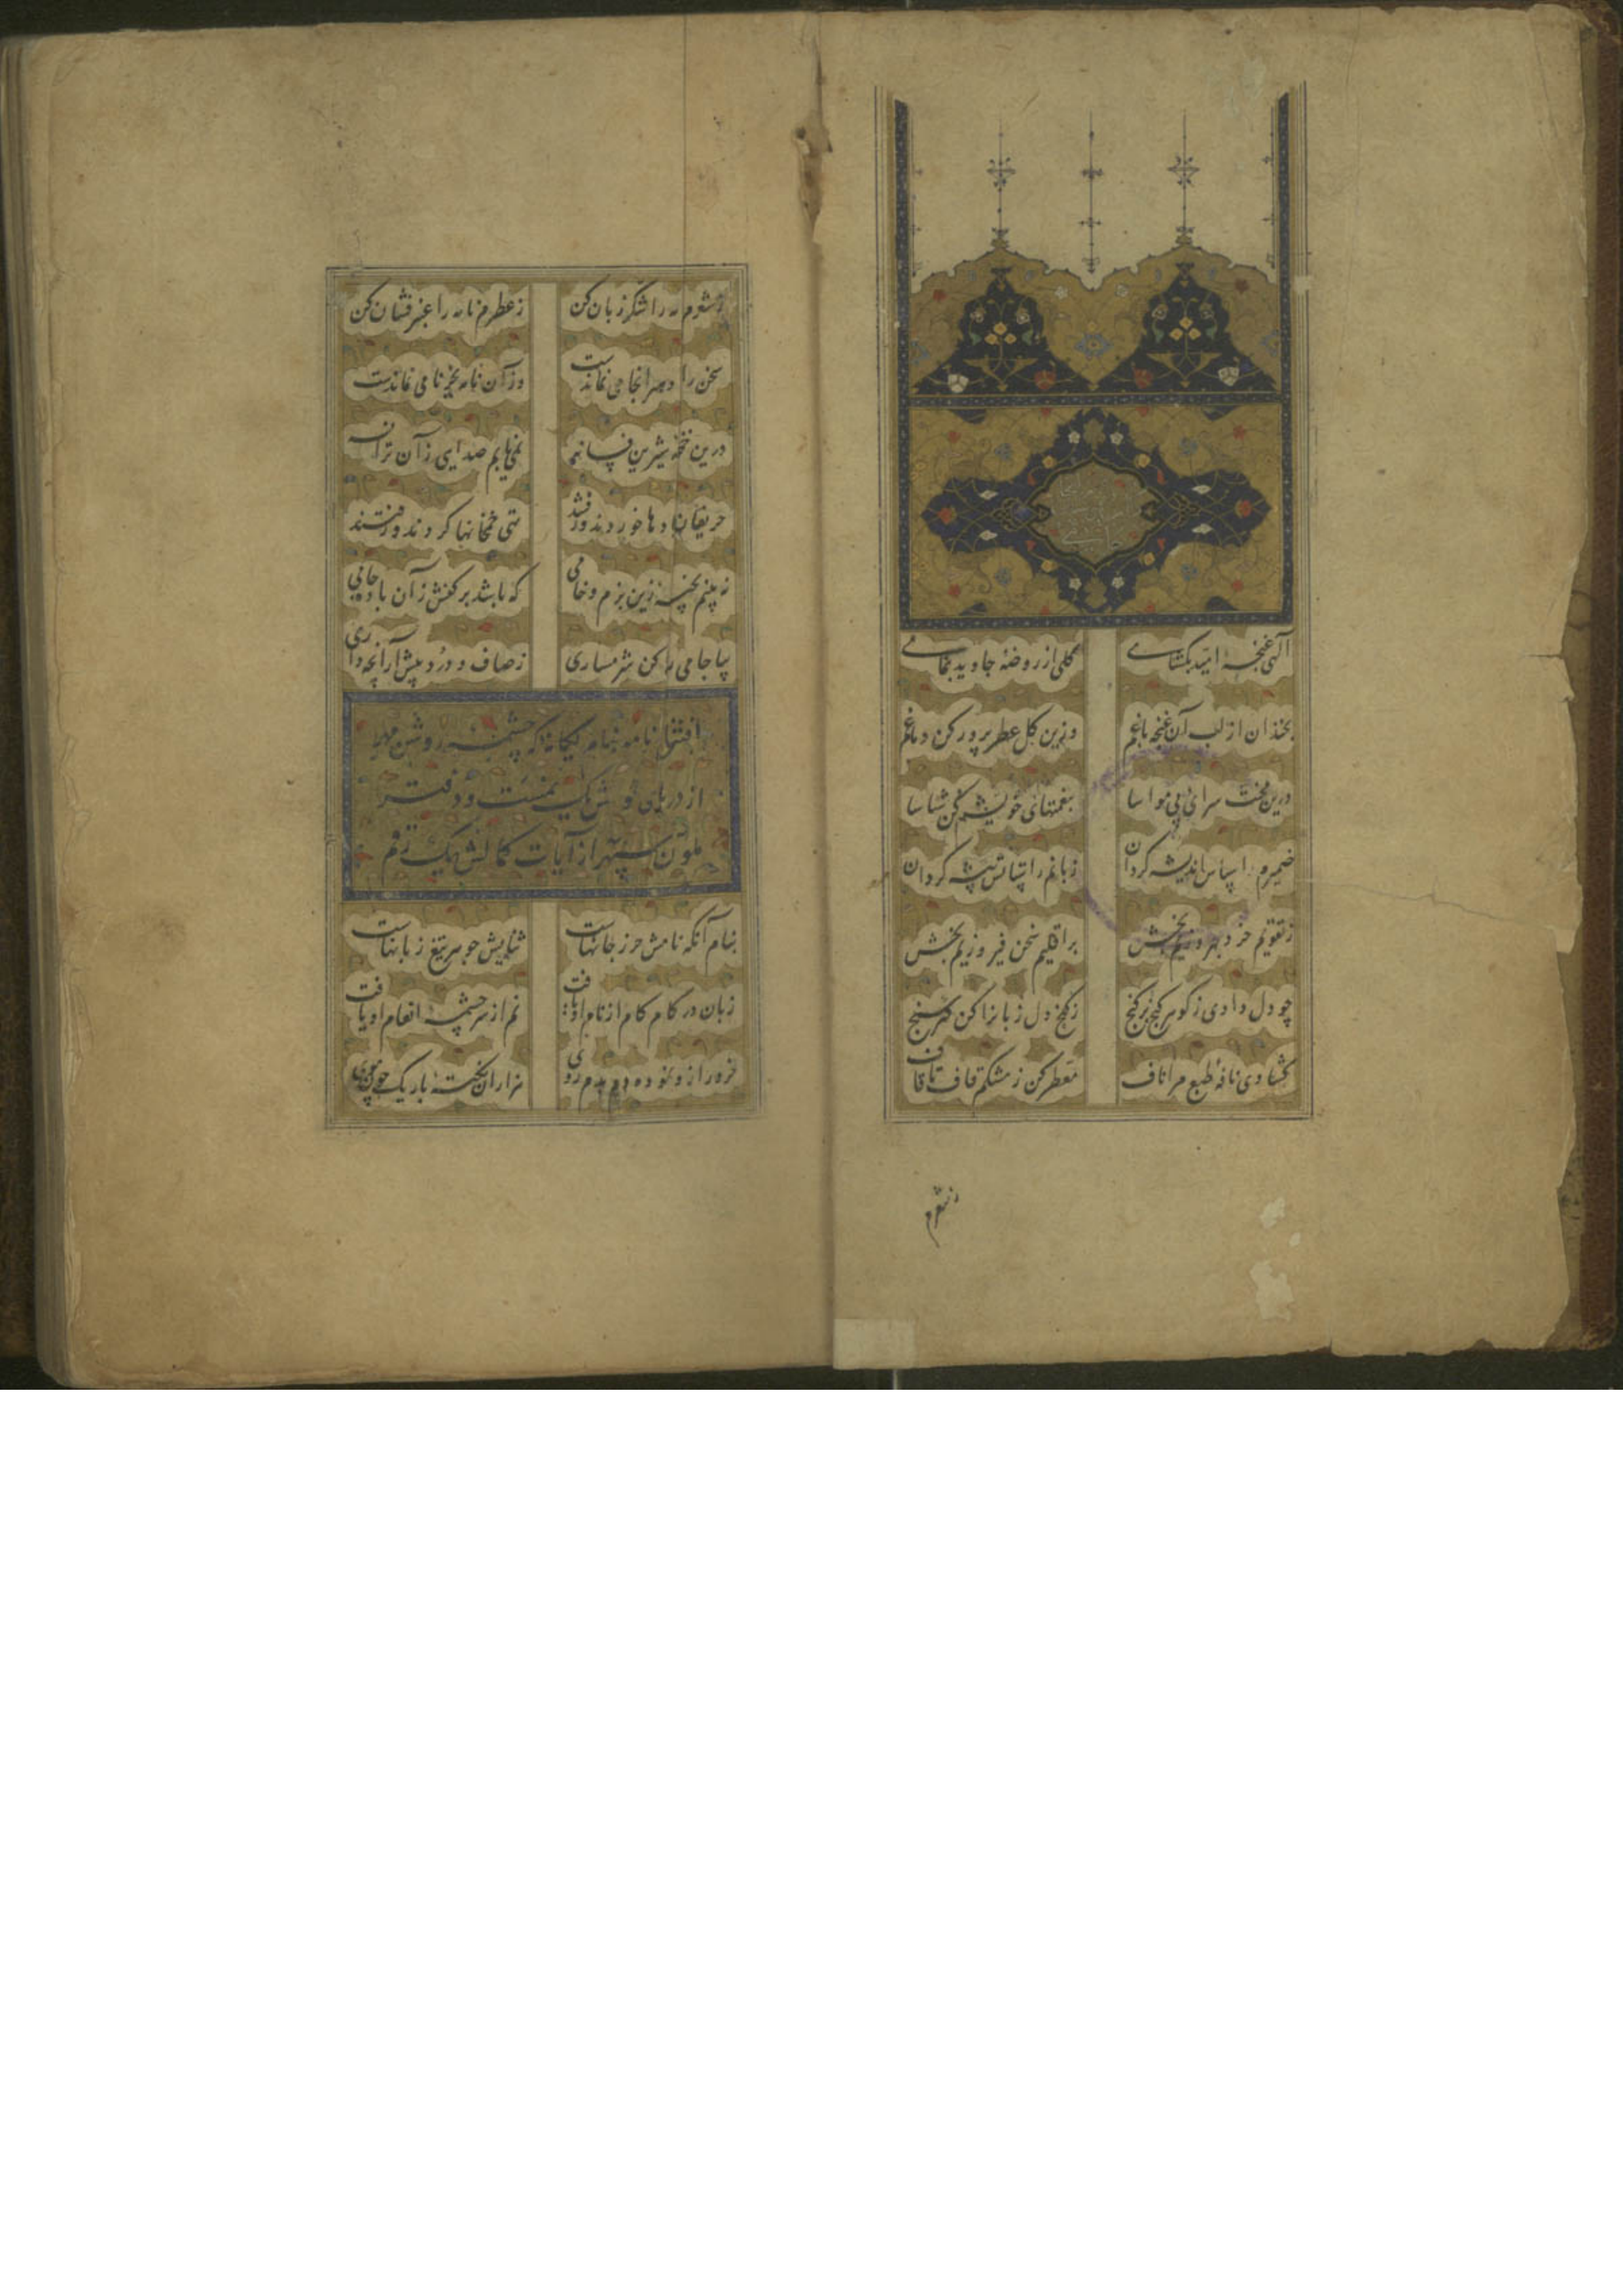 الهی غنچهٔ امید بگشای گلی از روضهٔ جاوید بنمای
بخندان از لب آن غنچه باغم وزین گل عطرپرور کن دماغم
درین محنت سرای بی مواسا بنعمتهای خویشم کن شناسا
ضمیرم را سپاس اندیشه گردان زبانم را ستایش پیشه گردان
ز تقویم خرد بهروزیم بخش بر اقلیم سخن فیروزیم بخش
چو دل دادی ز گوهر گنج بر گنج ز گنج دل زبانرا کن گهرسنج
گشادی نافهٔ طبع مرا ناف معطر کن ز مشکم قاف تا قاف
ز شعرم
ز شعرم خامه را شکر زبان کن ز عطرم نامه را عنبر فشان کن
سخن را خود سرانجامی نماندست وزان نامه بجز نامی نماندست
درین خمخانهٔ شیرین فسانه نمی یابم صدایی زان ترانه
حریفان بادها خوردند و رفتند تهی خمخانها کردند و رفتند
نه بینم پختهٔ زین بزم و خامی که باشد بر کفش زان باده جامی
بیا جامی رها کن شرمساری ز صاف و درد پیش آر آنچه داری
افتتاح نامه بنام یگانهٔ که چشمهٔ روشن مهر
از دریای نمیست و دفتر
ملون سپهر از آیات کمالش یک رقم
بنام آنکه نامش حرز جانهاست ثنایش جوهر تیغ زبانهاست
زبان در کام کام از نام او یافت نم از سرچشمهٔ انعام او یافت
خرد را زو نموده دم بدم روی هزاران نکتهٔ باریک چون موی